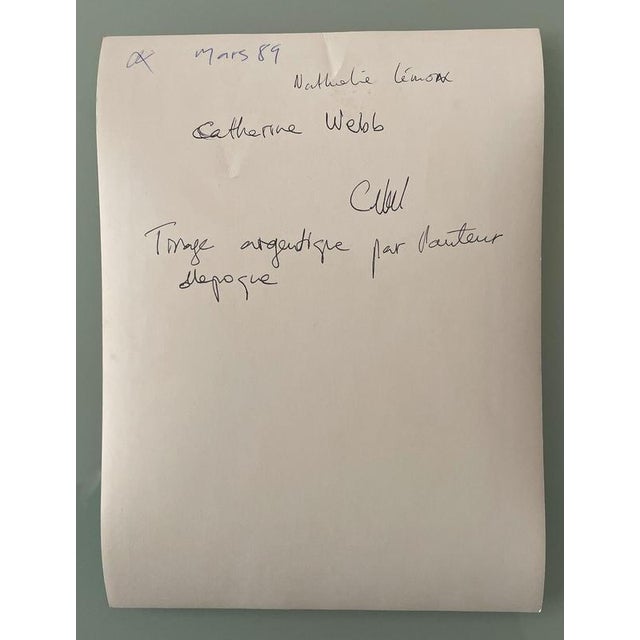 Mars 89
Nathalie Lémon
Catherine Webb
Tirage argentique par l'auteur
d'epoque